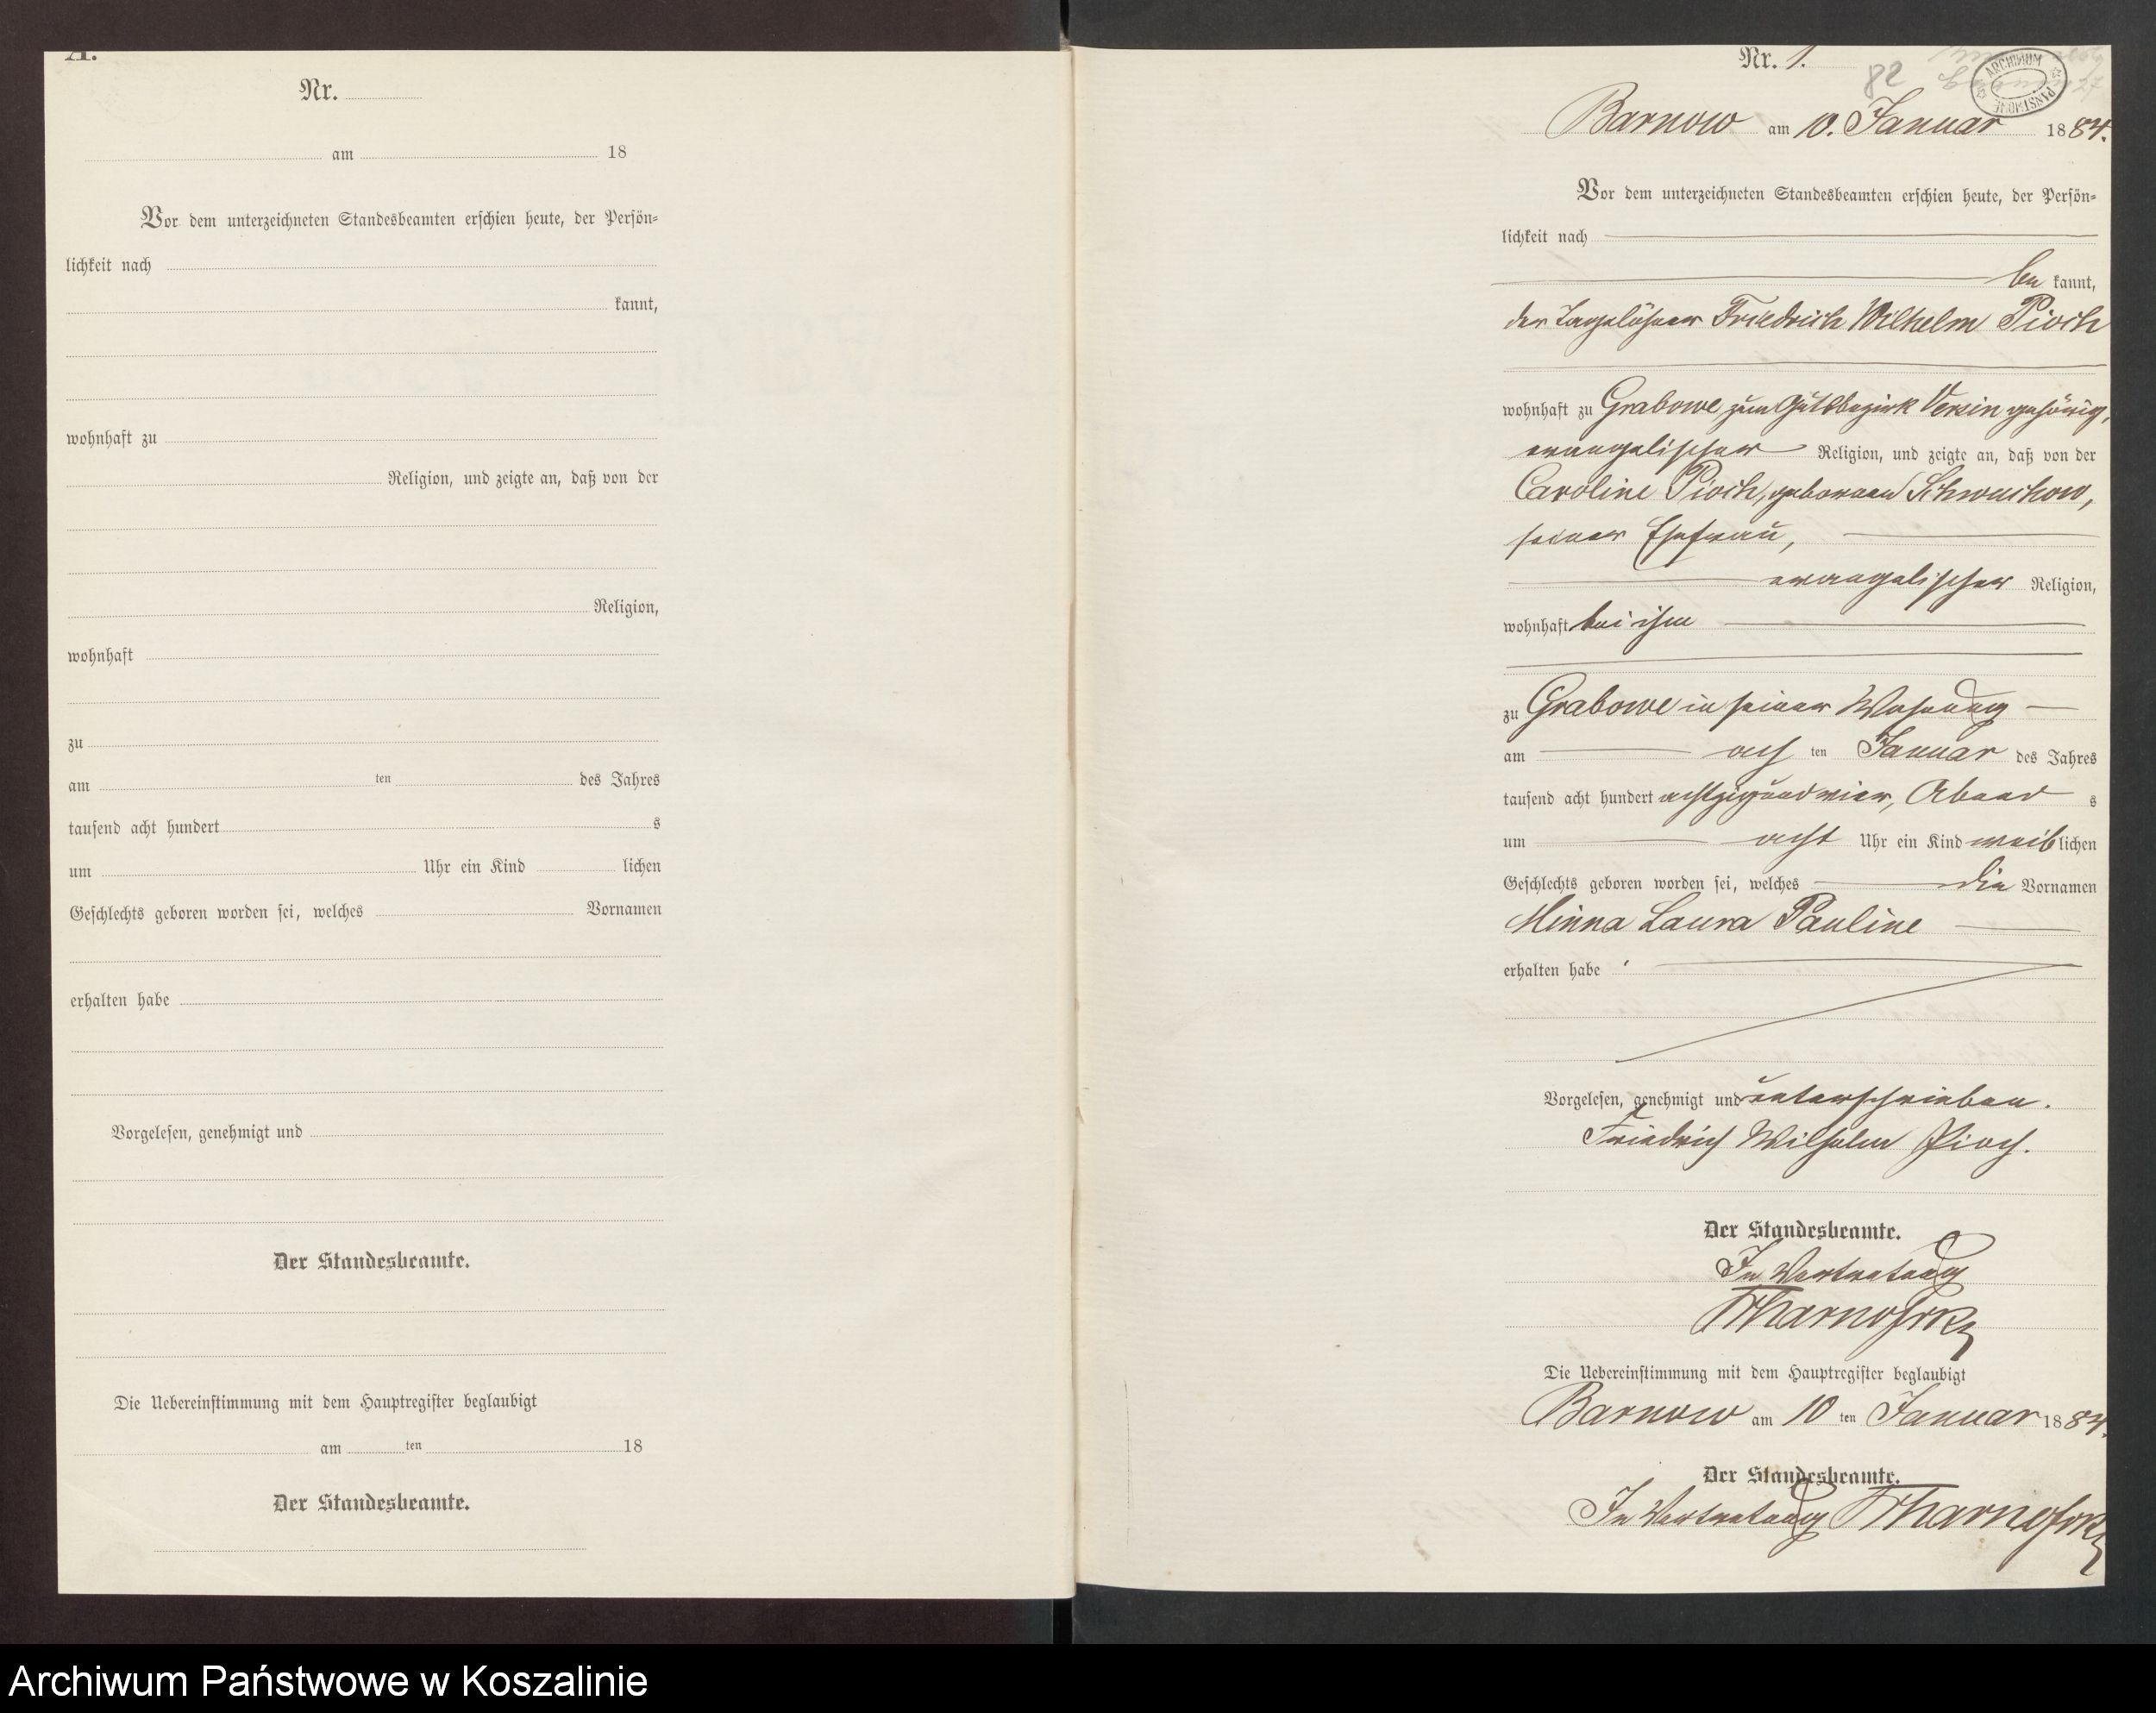 A.
Nr.
am 18
Vor dem unterzeichneten Standesbeamten erschien heute, der Persön-
lichkeit nach
kannt,
wohnhaft zu
Religion, und zeigte an, daß von der
Religion,
wohnhaft
zu
am ten des Jahres
tausend acht hundert s
um Uhr ein Kind lichen
Geschlechts geboren worden sei, welches Vornamen
erhalten habe
Vorgelesen, genehmigt und
Der Standesbeamte.
Die Uebereinstimmung mit dem Hauptregister beglaubigt
am ten 18
Der Standesbeamte.
Nr. 1.
82
ARCHIWUM PAŃSTWOWE
Barnow am 10. Januar 1884.
Vor dem unterzeichneten Standesbeamten erschien heute, der Persön-
lichkeit nach
be kannt,
der Tagelöhner Friedrich Wilhelm Pioch
wohnhaft zu Grabowe zum Gutsbezirk Versin gehörig,
evangelischer Religion, und zeigte an, daß von der
Caroline Pioch, geborenen Schwuchow,
seiner Ehefrau,
evangelischer Religion,
wohnhaft bei ihm
zu Grabowe in seiner Wohnung
am ach ten Januar des Jahres
tausend acht hundert achtzigundvier, Abend s
um acht Uhr ein Kind weiblichen
Geschlechts geboren worden sei, welches die Vornamen
Minna Laura Pauline
erhalten habe
Vorgelesen, genehmigt und unterschrieben.
Friedrich Wilhelm Pioch.
Der Standesbeamte.
In Vertretung
Die Uebereinstimmung mit dem Hauptregister beglaubigt
Barnow am 10 ten Januar 1884.
Der Standesbeamte.
In Vertretung
Archiwum Państwowe w Koszalinie